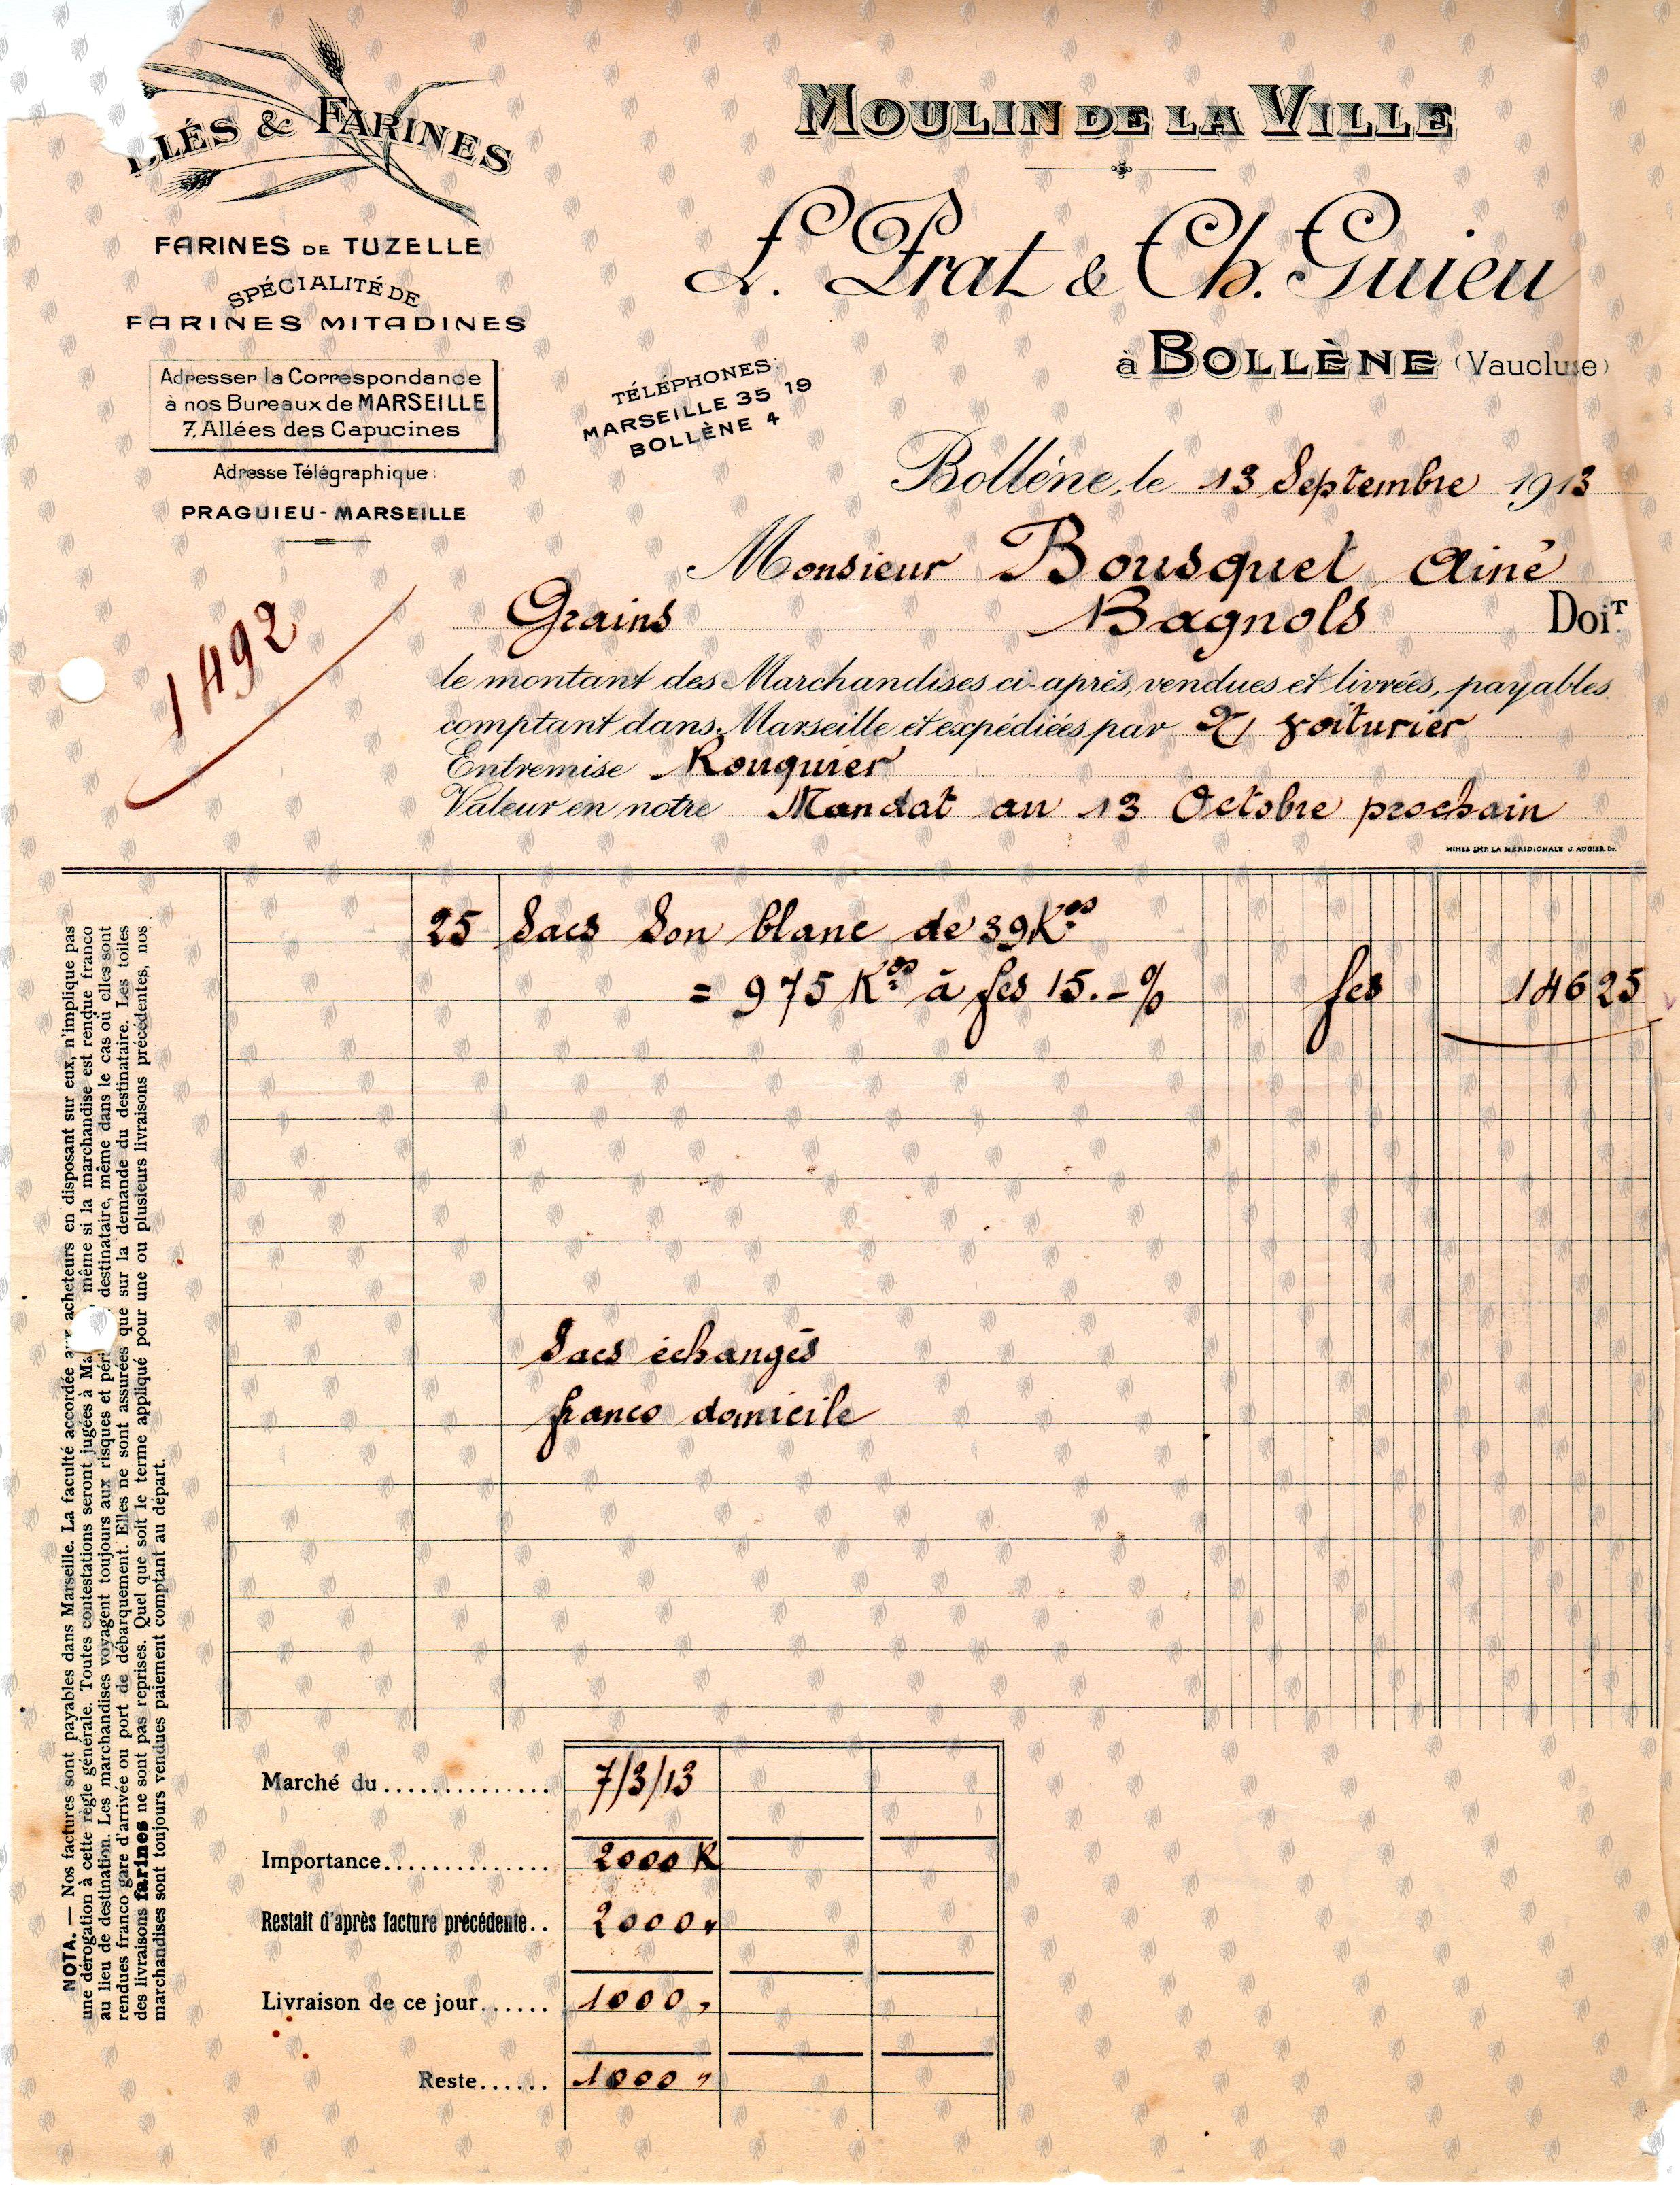 & FARINES
FARINES DE TUZELLE
SPÉCIALITÉ DE
FARINES MITADINES
Adresser la Correspondance
à nos Bureaux de MARSEILLE
7, Allées des Capucines
Adresse Télégraphique:
PRAGUIEU-MARSEILLE
MOULIN DE LA VILLE
L. Prat & Ch. Guieu
à BOLLÈNE (Vaucluse)
TÉLÉPHONES:
MARSEILLE 35 19
BOLLÈNE 4
Bollène, le 13 Septembre 1913
Monsieur Bousquet Ainé
Grains Bagnols DOIT.
1492
le montant des Marchandises ci-après, vendues et livrées, payables
comptant dans Marseille et expédiées par voiturier
Entremise Rouquier
Valeur en notre Mandat au 13 Octobre prochain
NIMES IMP. LA MÉRIDIONALE J. AUGIER Dr.
25 Sacs Son blanc de 39 Kos
= 975 Kos à fcs 15.-% fcs 146 25
Sacs échangés
franco domicile
NOTA. — Nos factures sont payables dans Marseille. La faculté accordée acheteurs en disposant sur eux, n'implique pas
une dérogation à cette règle générale. Toutes contestations seront jugées à même si la marchandise est rendue franco
au lieu de destination. Les marchandises voyagent toujours aux risques et destinataire, même dans le cas où elles sont
rendues franco gare d'arrivée ou port de débarquement. Elles ne sont assurées que sur la demande du destinataire. Les toiles
des livraisons farines ne sont pas reprises. Quel que soit le terme appliqué pour une ou plusieurs livraisons précédentes, nos
marchandises sont toujours vendues paiement comptant au départ.
Marché du.............. 7/3/13
Importance.............. 2000 K
Restait d'après facture précédente.. 2000 "
Livraison de ce jour...... 1000 "
Reste...... 1000 "